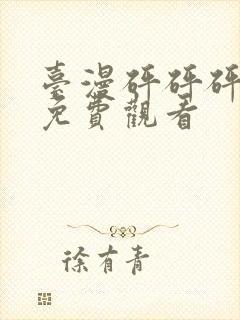 臺漫砰砰砰
免費觀看
徐有青